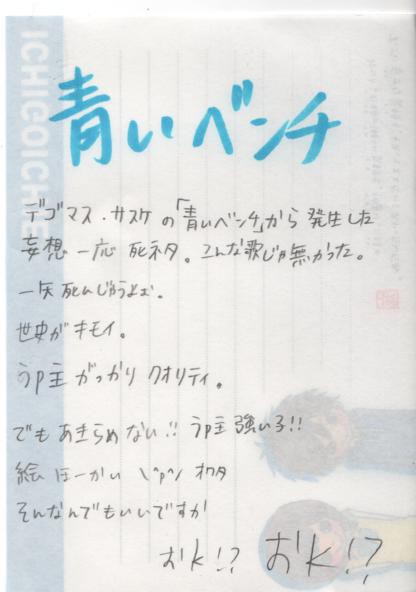 ICHIGOICHE
青いベンチ
テゴマス・サスケの「青いベンチ」から発生した
妄想 一応 死ネタ。こんな歌じゃ無かった。
死んじゃうよぉ.
がキモイ。
うp主 がっかり クオリティ。
でも あきらめない!! うp主 強い子!!
絵 ほーかい \^p^/ オワタ
そんなんでもいいですか
おk!? おk!?